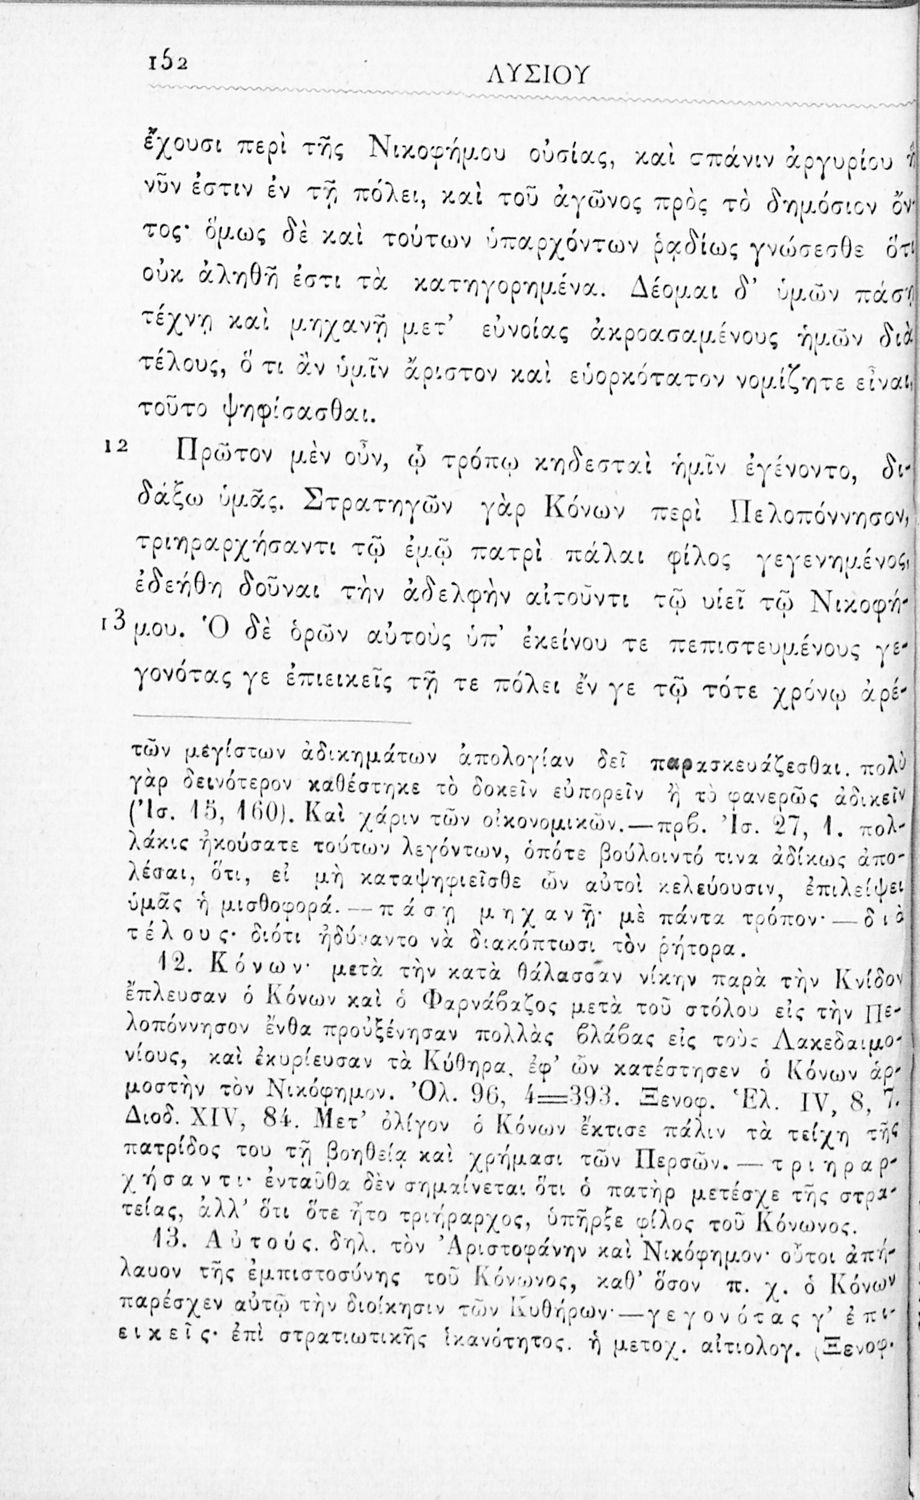 152
ΛΥΣΙΟΥ
ἔχουσι περὶ τῆς Νικοφήμου οὐσίας, καὶ σπάνιν ἀργυρίου ἣ
νῦν ἐστιν ἐν τῇ πόλει, καὶ τοῦ ἀγῶνος πρὸς τὸ δημόσιον ὄν-
τος· ὅμως δὲ καὶ τούτων ὑπαρχόντων ῥᾳδίως γνώσεσθε ὅτι
οὐκ ἀληθῆ ἐστι τὰ κατηγορημένα. Δέομαι δ’ ὑμῶν πάσῃ
τέχνῃ καὶ μηχανῇ μετ’ εὐνοίας ἀκροασαμένους ἡμῶν διὰ
τέλους, ὅ τι ἂν ὑμῖν ἄριστον καὶ εὐορκότατον νομίζητε εἶναι,
τοῦτο ψηφίσασθαι.
12 Πρῶτον μὲν οὖν, ᾧ τρόπῳ κηδεσταὶ ἡμῖν ἐγένοντο, δι-
δάξω ὑμᾶς. Στρατηγῶν γὰρ Κόνων περὶ Πελοπόννησον,
τριηραρχήσαντι τῷ ἐμῷ πατρὶ πάλαι φίλος γεγενημένος,
ἐδεήθη δοῦναι τὴν ἀδελφὴν αἰτοῦντι τῷ υἱεῖ τῷ Νικοφή-
13 μου. Ὁ δὲ ὁρῶν αὐτοὺς ὑπ’ ἐκείνου τε πεπιστευμένους γε-
γονότας γε ἐπιεικεῖς τῇ τε πόλει ἔν γε τῷ τότε χρόνῳ ἀρέ-
τῶν μεγίστων ἀδικημάτων ἀπολογίαν δεῖ παρασκευάζεσθαι. πολὺ
γὰρ δεινότερον καθέστηκε τὸ δοκεῖν εὐπορεῖν ἢ τὸ φανερῶς ἀδικεῖν
(Ἰσ. 15, 160). Καὶ χάριν τῶν οἰκονομικῶν.—πρβ. Ἰσ. 27, 1. πολ-
λάκις ἠκούσατε τούτων λεγόντων, ὁπότε βούλοιντό τινα ἀδίκως ἀπο-
λέσαι, ὅτι, εἰ μὴ καταψηφιεῖσθε ὧν αὐτοὶ κελεύουσιν, ἐπιλείψει
ὑμᾶς ἡ μισθοφορά.—πάσῃ μηχανῇ· μὲ πάντα τρόπον·—διὰ
τέλους· διότι ἠδύναντο νὰ διακόπτωσι τὸν ῥήτορα.
12. Κόνων· μετὰ τὴν κατὰ θάλασσαν νίκην παρὰ τὴν Κνίδον
ἔπλευσαν ὁ Κόνων καὶ ὁ Φαρνάβαζος μετὰ τοῦ στόλου εἰς τὴν Πε-
λοπόννησον ἔνθα προὐξένησαν πολλὰς βλάβας εἰς τοὺς Λακεδαιμο-
νίους, καὶ ἐκυρίευσαν τὰ Κύθηρα, ἐφ’ ὧν κατέστησεν ὁ Κόνων ἁρ-
μοστὴν τὸν Νικόφημον. Ὀλ. 96, 4=393. Ξενοφ. Ἑλ. IV, 8, 7.
Διοδ. XIV, 84. Μετ’ ὀλίγον ὁ Κόνων ἔκτισε πάλιν τὰ τείχη τῆς
πατρίδος του τῇ βοηθείᾳ καὶ χρήμασι τῶν Περσῶν.—τριηραρ-
χήσαντι· ἐνταῦθα δὲν σημαίνεται ὅτι ὁ πατὴρ μετέσχε τῆς στρα-
τείας, ἀλλ’ ὅτι ὅτε ἦτο τριήραρχος, ὑπῆρξε φίλος τοῦ Κόνωνος.
13. Αὐτούς. δηλ. τὸν Ἀριστοφάνην καὶ Νικόφημον· οὗτοι ἀπή-
λαυον τῆς ἐμπιστοσύνης τοῦ Κόνωνος, καθ’ ὅσον π. χ. ὁ Κόνων
παρέσχεν αὐτῷ τὴν διοίκησιν τῶν Κυθήρων·—γεγονότας γ’ ἐπι-
εικεῖς· ἐπὶ στρατιωτικῆς ἱκανότητος. ἡ μετοχ. αἰτιολογ. (Ξενοφ.